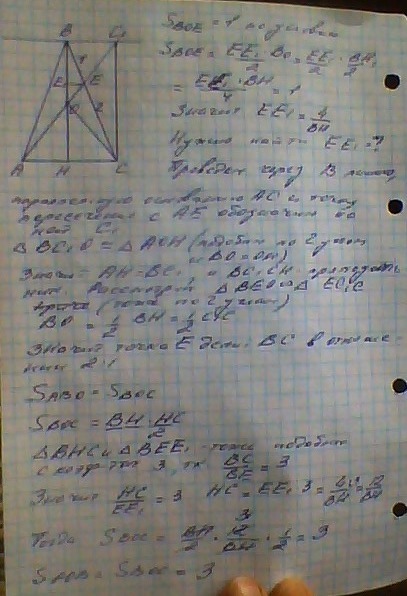 B C₁
1
E₁ E
O 2
A H C
S_BOE = 1 по условию
S_BOE = EE₁/2 · BO = EE₁/2 · BH/2
= EE₁ · BH/4 = 1
Значит EE₁ = 4/BH
Нужно найти EE₁ = ?
Проведем через B линию,
параллельную основанию AC и точку
пересечения с AE обозначим
C₁
△ BC₁O = △ AOH (подобны по 2 углам
и BO = OH)
Значит AH = BC₁, и BC₁CH
Рассмотрим △ BEO и △ EC₁C
(тоже по 2 углам)
BO = 1/2 BH = 1/2 C₁C
Значит точка E делит BC в отноше-
нии 2:1
S_ABO = S_BOC
S_BOC = BH · HC/2
△ BHC и △ BEE₁ тоже подобны
с 3, тк BC/BE = 3
Значит HC/EE₁ = 3 HC = EE₁ · 3 = 4·3/BH = 12/BH
Тогда S_BOC = BH/2 · 12/BH · 1/2 = 3
S_AOB = S_BOC = 3